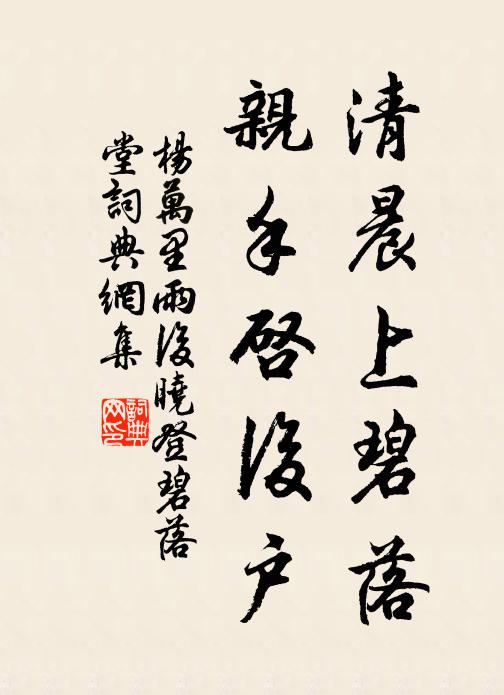 清晨上碧落
親手啓後戶
楊萬里雨後曉登碧落
堂詞典網集
詞典
網印